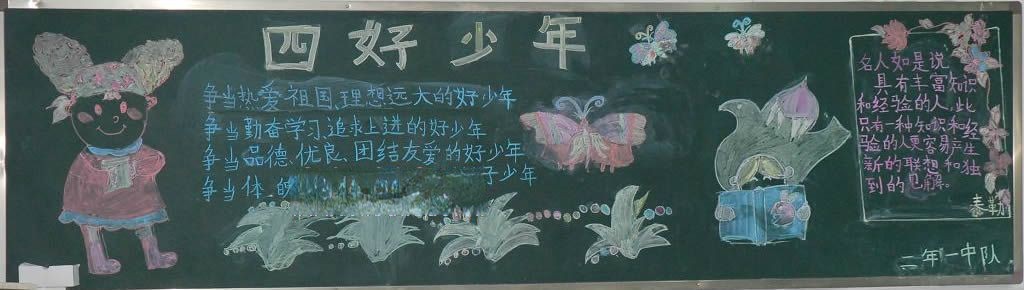 四好少年
争当热爱祖国、理想远大的好少年
争当勤奋学习、追求上进的好少年
争当品德、优良、团结友爱的好少年
争当体 子少年
名人如是说
具有丰富知识
和经验的人,比
只有一种知识和经
验的人更容易产生
新的联想和独
到的见解。
泰勒
二年一中队